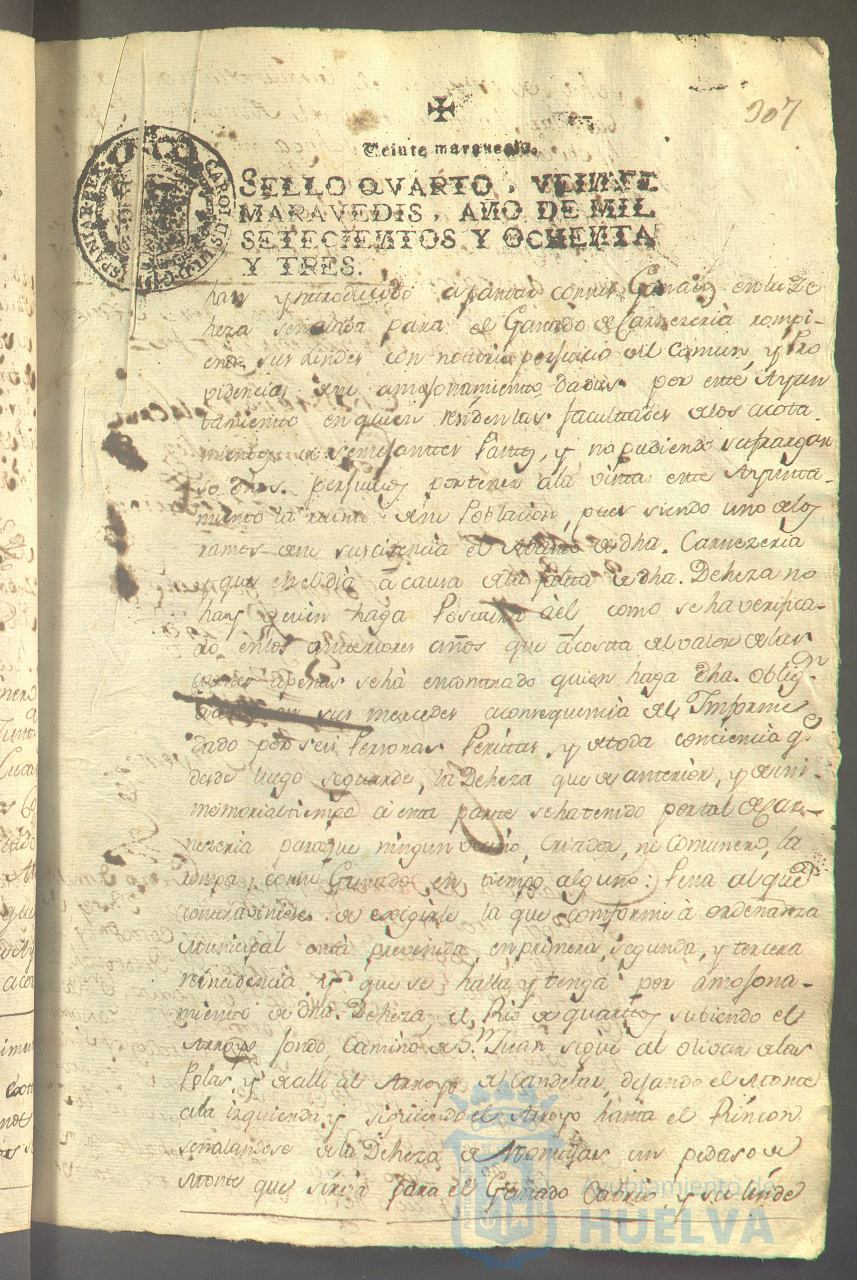 307
Veinte maravedis.
SELLO QVARTO, VEINTE
MARAVEDIS, AÑO DE MIL
SETECIENTOS Y OCHENTA
Y TRES.
CAROLUS III D G HISPANIAR REX
han yntroducido a pastar con sus Ganados en la De
heza señalada para el Ganado de Carnezeria rompi-
endo sus Lindes con notorio perjuicio del Comun, y Pro
videncias de su amojonamiento dadas por este Ayun
tamiento en quien reciden las facultades de los acota-
mientos de semejantes Partes, y no pudiendo sufragar
se dhos. perjuicios por tener a la vista este Ayunta-
miento la ruina de su Poblacion, pues siendo uno de los
ramos de su subcistencia el Abasto de dha. Carnezeria
y que en el dia à causa de la falta de dha. Deheza no
hay quien haga Postura àel como se ha verifica-
do en los anteriores años que à costa del valor de las
carnes apenas se hà encontrado quien haga dha. oblig.on
sus mercedes a consequencia del Informe
dado por seis Personas Peritas, y de toda conciencia q.e
desde luego se guarde, la Deheza que de anterior, y de in-
memorial tiempo à esta parte se ha tenido por tal de Car-
nezeria para que ningun vecino, Criador, ni comunero, la
rompa, con su Ganado en tiempo alguno: Pena al que
contraviniere de exigirle la que conforme à ordenanza
Municipal està prevenida, en primera, segunda, y tercera
reincidencia y que se halla y tenga por amojona-
miento de dha. Deheza, el Rio de quartos subiendo el
Arroyo fondo, Camino de S.n Juan sigue al olivar de las
Polas, y de alli al Arroyo de Candelar, dejando el Monte
a la izquierda y siguiendo el Arroyo hasta el Rincon
señalandose de la Deheza de Montijar un pedaso de
Monte que sirva para el Ganado Cabrio, y su linde
Ayuntamiento de
HUELVA